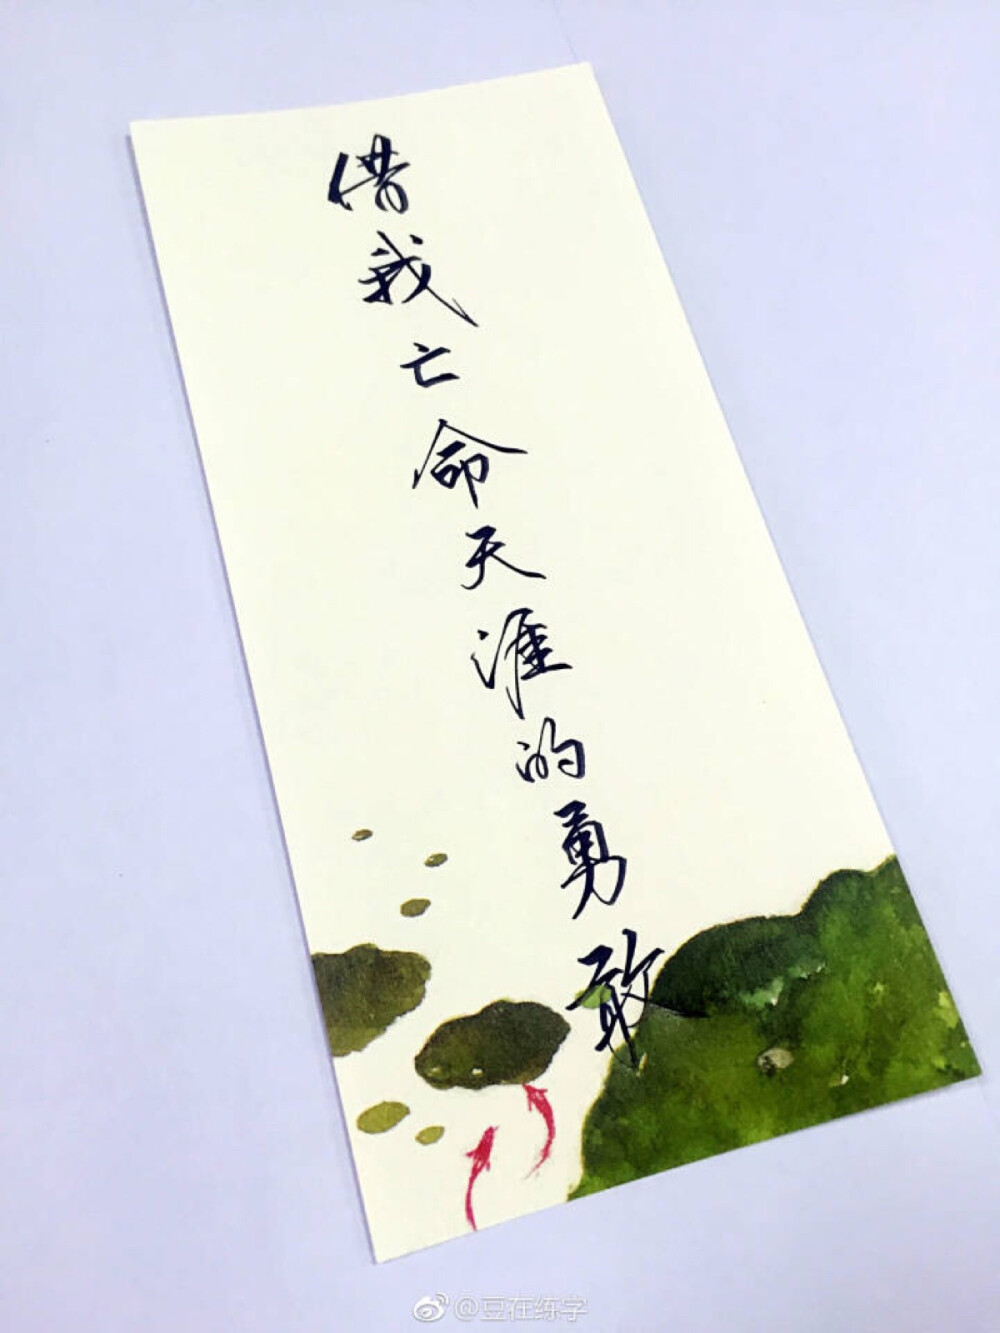 借我亡命天涯的勇敢
@豆在练字